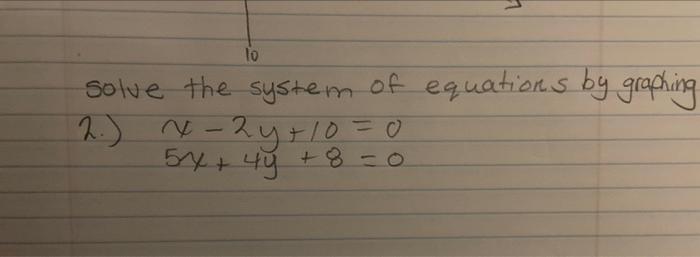 10
solve the system of equations by graphing
2.) x - 2y + 10 = 0
5x + 4y + 8 = 0